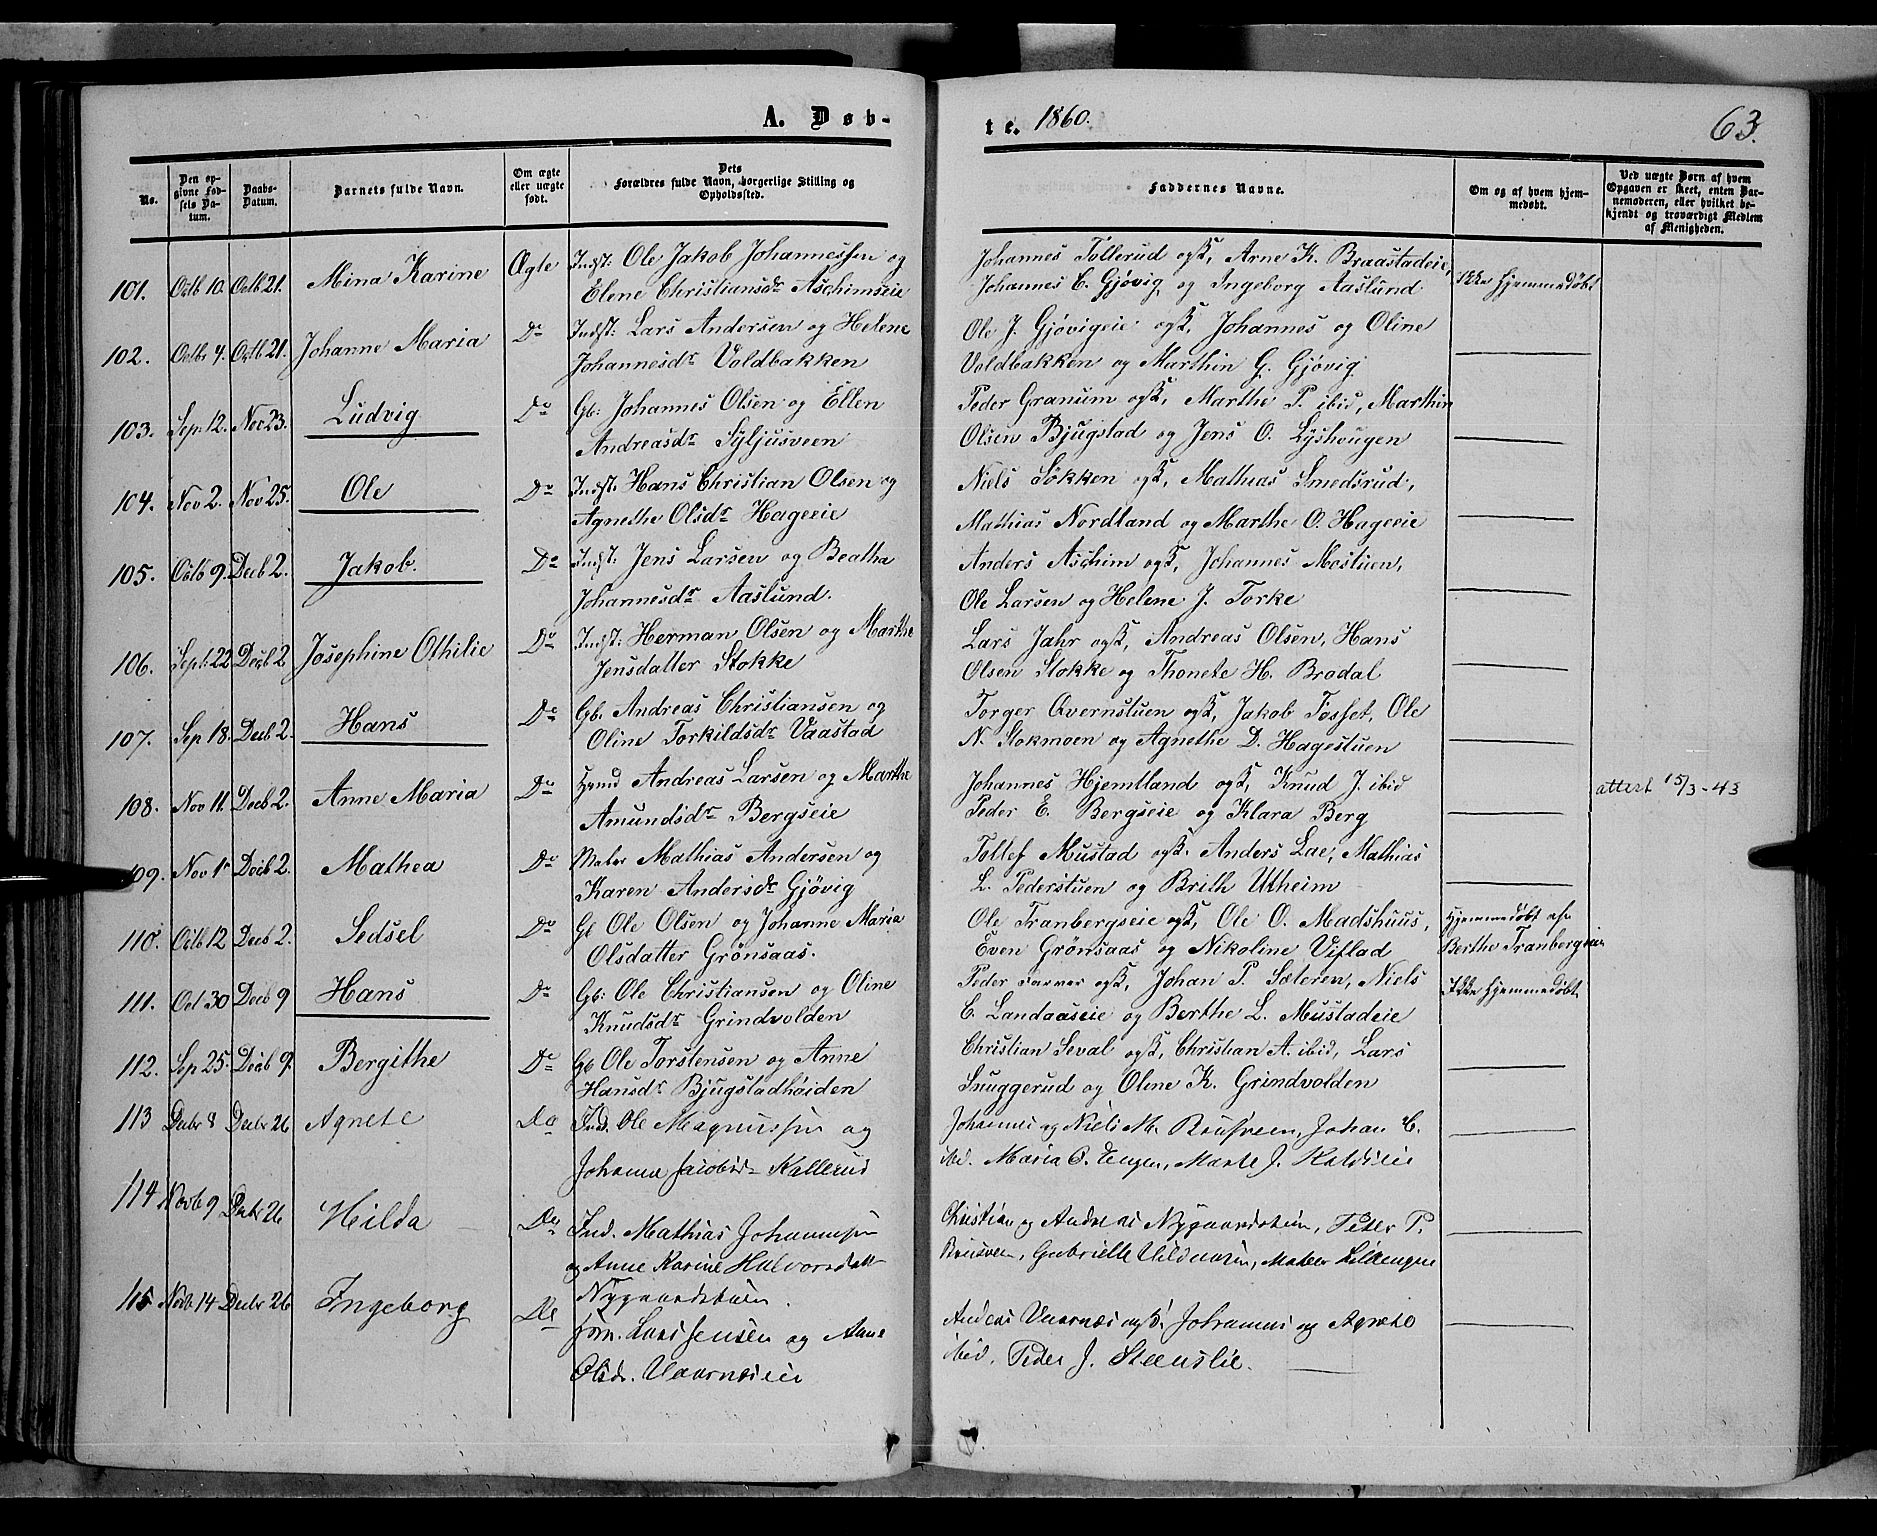 A. Døb-
te. 1860.
63.
No.
Den op-
givne Fød-
sels Da-
tum.
Daabs-
Datum.
Barnets fulde Navn.
Om ægte
eller uægte
født.
Dets
Forældres fulde Navn, borgerlige Stilling og
Opholdssted.
Faddernes Navne.
Om og af hvem hjem-
medøbt.
Ved uægte Børn af hvem
Opgaven er skeet, enten Bar-
nemoderen, eller hvilket be-
kjendt og troværdigt Medlem
af Menigheden.
101. Octb 10. Octb 21. Mina Karine Ægte Indst: Ole Jakob Johannessen og
Elene Christiansdr Aschimseie
Johannes Tollerud ogK, Arne K. Braastadeie,
Johannes C. Gjøvig og Ingeborg Aaslund
Ikke Hjemmedøbt
102. Octbr 4. Octb 21. Johanne Maria Do Indst: Lars Andersen og Helene
Johannesdr Voldbakken
Ole J. Gjøvigeie ogK, Johannes og Oline
Voldbakken og Marthin G. Gjøvig
103. Sep. 12. Nov 23. Ludvig Do Gb: Johannes Olsen og Ellen
Andreasdr Syljusveen
Peder Granum ogK, Marthe P. ibid, Marthin
Olsen Bjugstad og Jens O. Lyshougen
104. Nov 2. Nov 25. Ole Do Indst: Hans Christian Olsen og
Agnethe Olsdr Hageeie
Niels Søkken ogK, Mathias Smedsrud,
Mathias Nordland og Marthe O. Hageeie
105. Octb 9. Decb 2. Jakob. Do Indst: Jens Larsen og Beatha
Johannesdr Aaslund.
Anders Aschim ogK, Johannes Mostuen,
Ole Larsen og Helene J. Torke
106. Sept. 22 Decb 2 Josephine Othilie Do Indst: Herman Olsen og Marthe
Jensdatter Stokke
Lars Jahr ogK, Andreas Olsen, Hans
Olsen Stokke og Thonete H. Brodal
107. Sep 18. Decb 2. Hans Do Gb. Andreas Christiansen og
Oline Torkildsdr Vaastad
Torger Qvernstuen ogK, Jakob Fosset, Ole
N. Stokmoen og Agnethe D. Hagestuen
108. Nov 11. Decb 2. Anne Maria Do Hmd Andreas Larsen og Marthe
Amundsdr Bergseie
Johannes Hjemtland ogK, Knud J. ibid
Peder E. Bergseie og Klara Berg
attest 15/3-43
109. Nov 1 Decb 2. Mathea Do Maler Mathias Andersen og
Karen Andersdr Gjøvig
Tollef Mustad ogK. Anders Lae, Mathias
L. Pederstuen og Brith Utheim
110. Octb 12 Decb 2. Sedsel Do Gb Ole Olsen og Johanne Maria
Olsdatter Grønsaas.
Ole Tranbergseie ogK, Ole O. Madshuus,
Even Grønsaas og Nikoline Viflad
Hjemmedøbt af
Berthe Tranbergseie
111. Oct 30 Decb 9 Hans Do Gb: Ole Christiansen og Oline
Knudsdr Grindvolden
Peder ogK, Johan P. Sæteren, Niels
C. Landaaseie og Berthe L. Mustadeie
Ikke Hjemmedøbt
112. Sep 25. Decb 9. Bergithe Do Gb Ole Torstensen og Anne
Hansdr Bjugstadhøiden
Christian Seval ogK, Christian A. ibid, Lars
Snuggerud og Olene K. Grindvolden
113 Decbr 8 Decbr 26 Agnete Do Ind. Ole Magnussen og
Johanna Jacobsdr Kallerud
Johannes og Nieli M. Bruusveen, Johan C.
ibid. Maria O. Engen, Marte J.
114 Novb 9 Decbr 26 Hilda Do Ind. Mathias Johannsen
og Anne Karine Halvorsdatter
Nygaardstuen.
Christian og Andreas Nygaardstuen, Peter P.
Bruusveen, Gabrielle
115 Novb. 14 Decbr 26 Ingeborg Do Lars Jensen og Anne
Olsdr. Vaarnæseie
Andreas Vaarnæs ogK. Johannes og Agnete
ibid. Peder J. Steenslie.